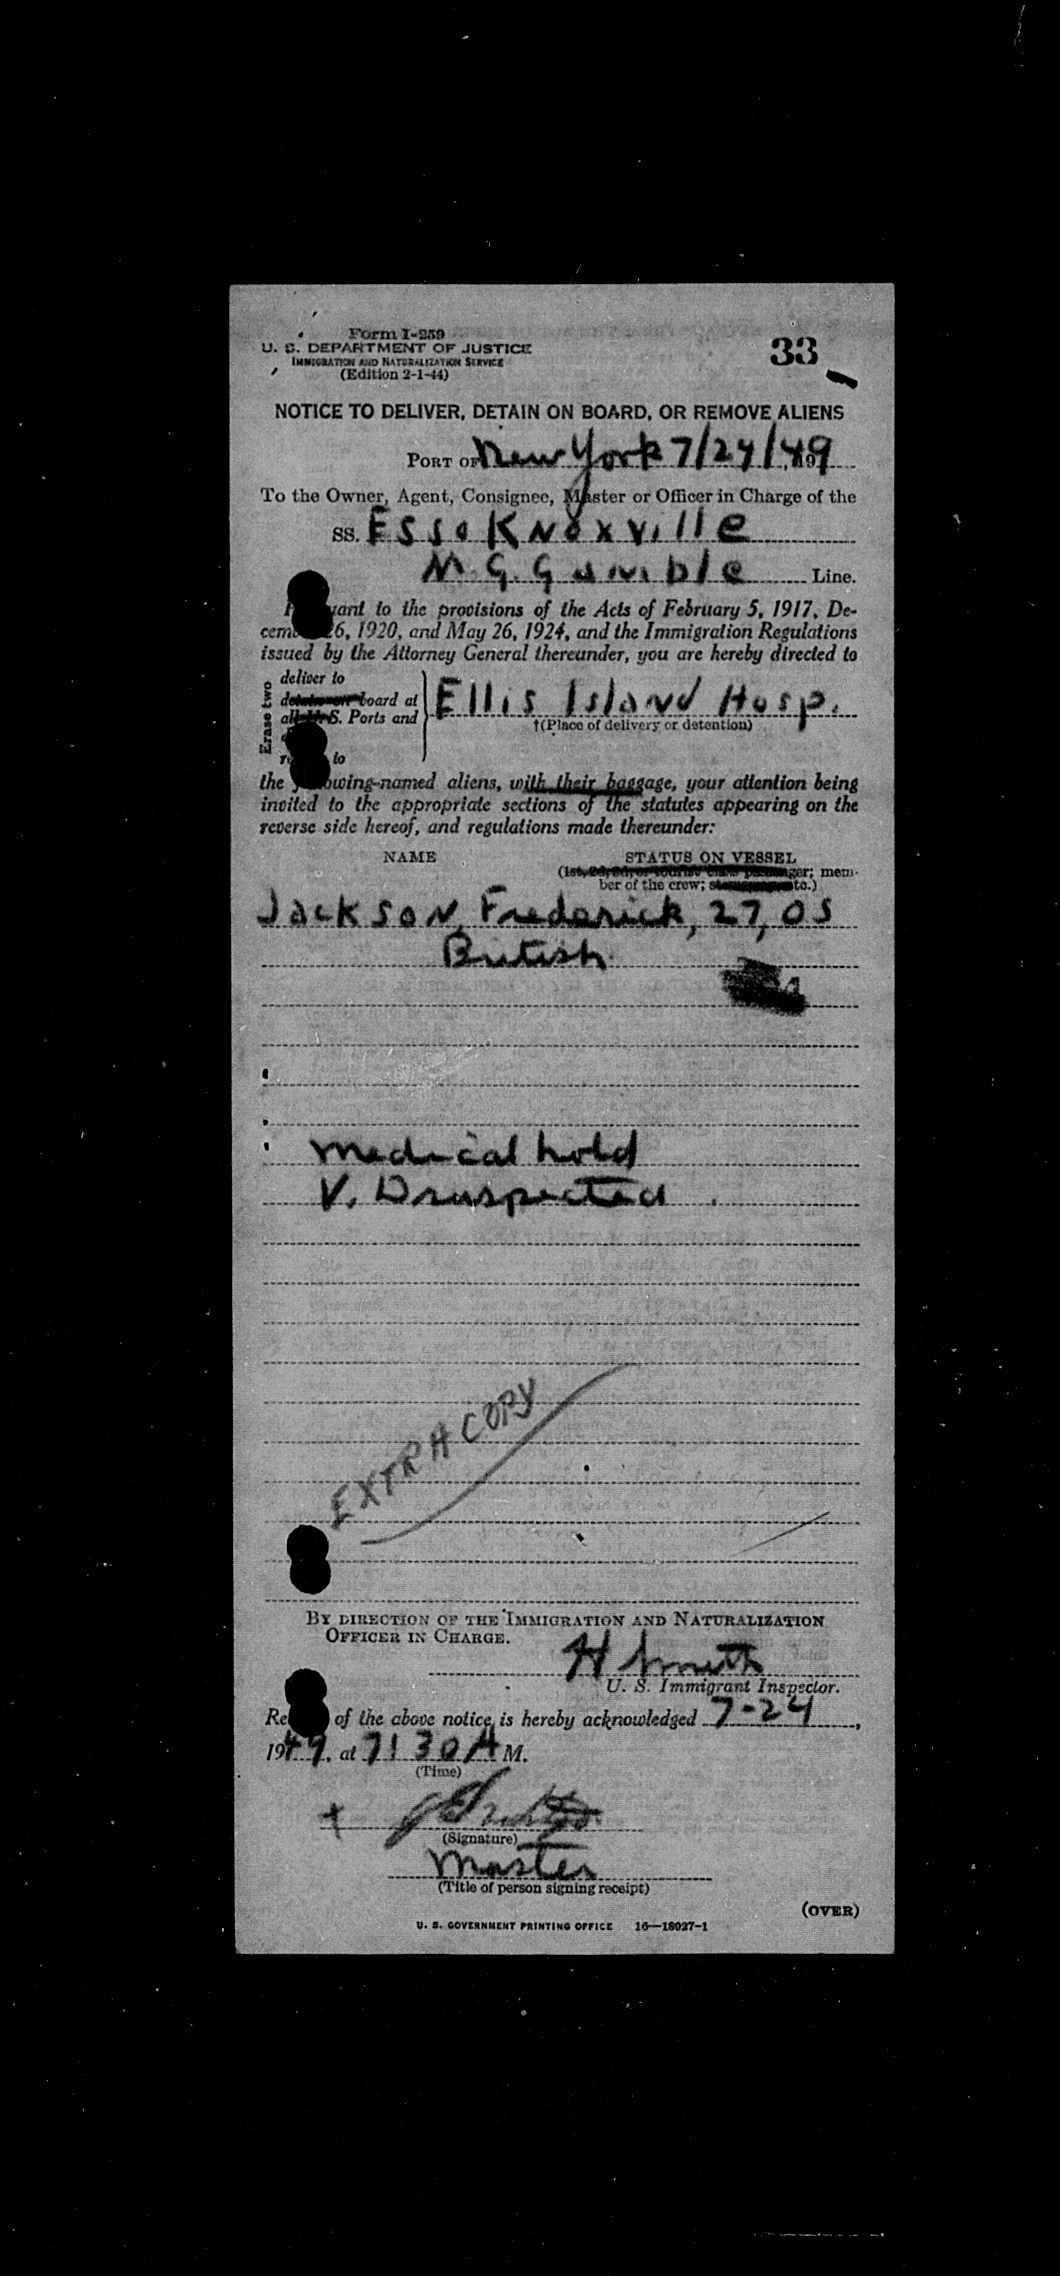 Form I-259
U. S. DEPARTMENT OF JUSTICE
IMMIGRATION AND NATURALIZATION SERVICE
(Edition 2-1-44)
33
NOTICE TO DELIVER, DETAIN ON BOARD, OR REMOVE ALIENS
PORT OF New York 7/24/49, 19
To the Owner, Agent, Consignee, Master or Officer in Charge of the
SS. Esso Knoxville
M. G. Gamble Line.
to the provisions of the Acts of February 5, 1917, De-
26, 1920, and May 26, 1924, and the Immigration Regulations
issued by the Attorney General thereunder, you are hereby directed to
Erase two
deliver to
board at
S. Ports and
to
Ellis Island Hosp.
†(Place of delivery or detention)
the following-named aliens, with their baggage, your attention being
invited to the appropriate sections of the statutes appearing on the
reverse side hereof, and regulations made thereunder:
NAME STATUS ON VESSEL
(1st, 2d, 3d, or tourist class passenger; mem-
ber of the crew; etc.)
Jackson, Frederick, 27, OS
British
medical hold
V. D suspected
EXTRA COPY
BY DIRECTION OF THE IMMIGRATION AND NATURALIZATION
OFFICER IN CHARGE.
H Smith
U. S. Immigrant Inspector.
of the above notice is hereby acknowledged 7-24,
1949, at 7:30 A M.
(Time)
(Signature)
Master
(Title of person signing receipt)
(OVER)
U. S. GOVERNMENT PRINTING OFFICE 16—18027-1